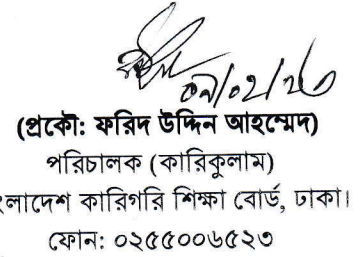 ০৯/০২/২৩
(প্রকৌ: ফরিদ উদ্দিন আহম্মেদ)
পরিচালক (কারিকুলাম)
লাদেশ কারিগরি শিক্ষা বোর্ড, ঢাকা।
ফোন: ০২৫৫০০৬৫২৩